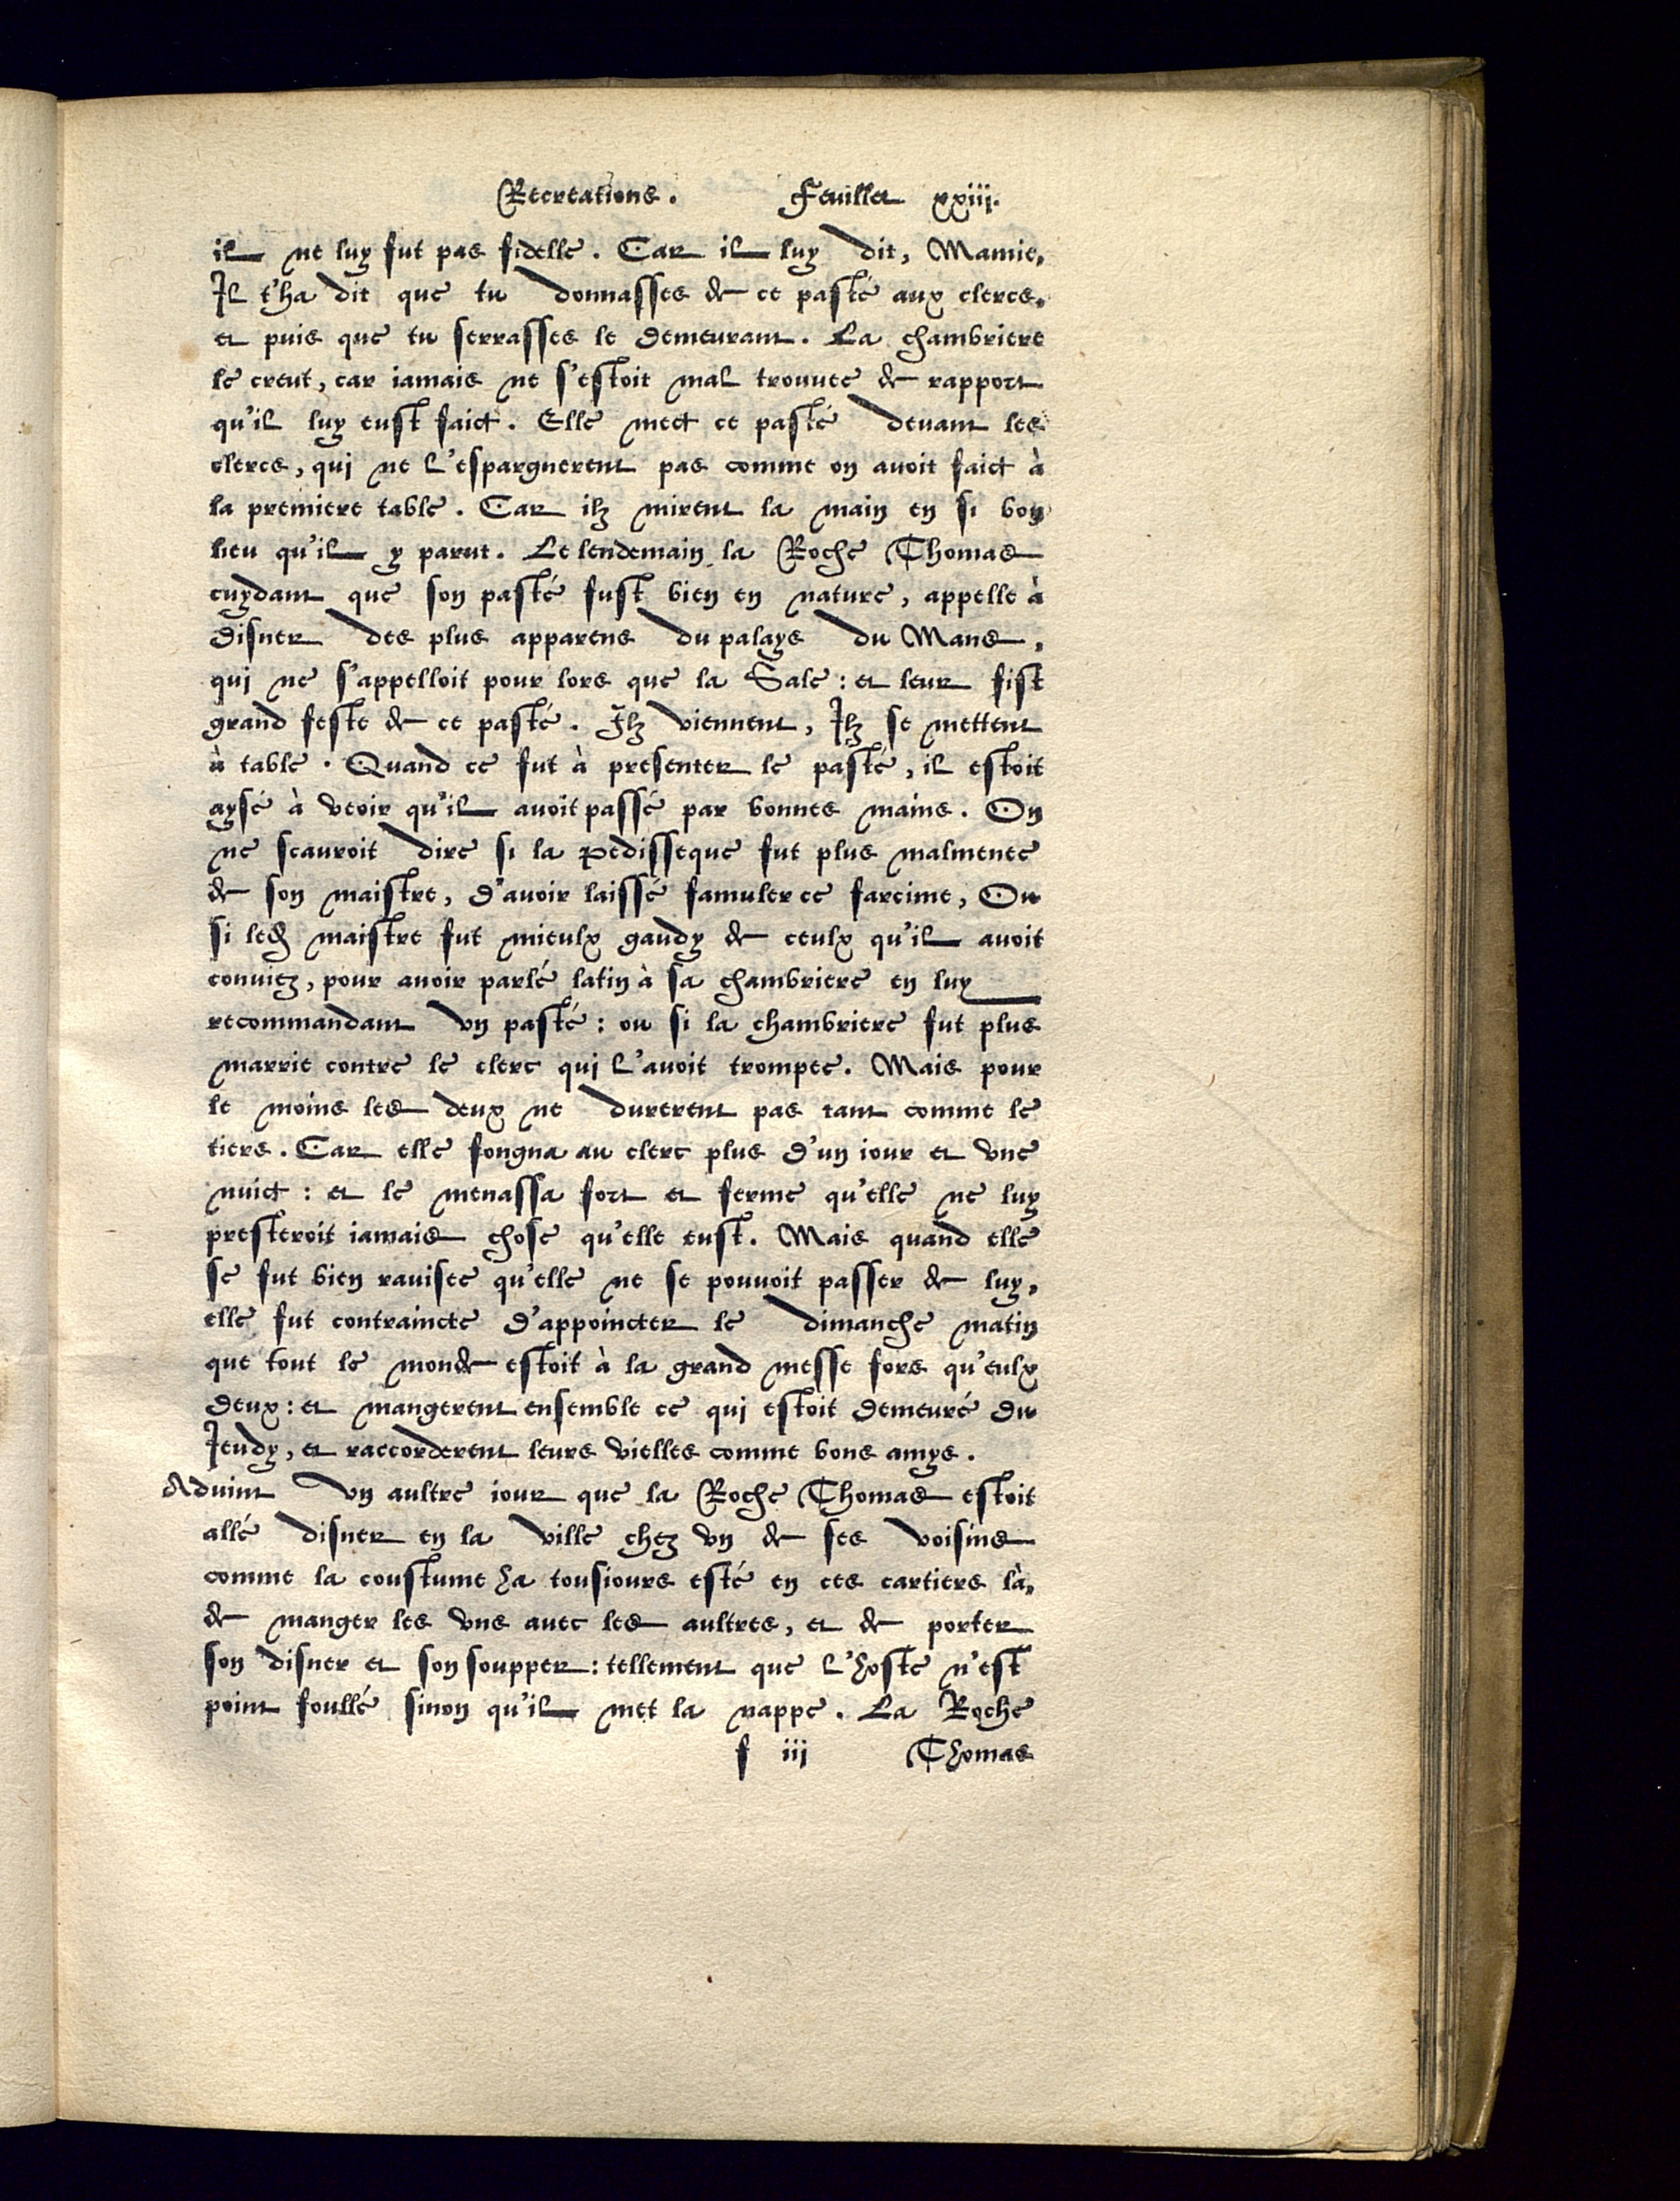 Recreations. Feuillet xxiij.
il ne luy fut pas fidelle. Car il luy dit, Mamie,
Il t'ha dit que tu donnasses de ce pasté aux clercs,
et puis que tu serrasses le demeurant. La chambriere
le creut, car iamais ne s'estoit mal trouuee de rapport
qu'il luy eust faict. Elle mect ce pasté deuant les
clercs, qui ne l'espargnerent pas comme on auoit faict à
la premiere table. Car ilz mirent la main en si bon
lieu qu'il y parut. Le lendemain la Roche Thomas
cuydant que son pasté fust bien en nature, appelle à
disner des plus apparens du palays du Mans,
qui ne s'appelloit pour lors que la Sale: et leur fist
grand feste de ce pasté. Ilz viennent, Ilz se mettent
à table. Quand ce fut à presenter le pasté, il estoit
aysé à veoir qu'il auoit passé par bonnes mains. On
ne scauroit dire si la pedisseque fut plus malmenee
de son maistre, d'auoir laissé famuler ce farcime, Ou
si led maistre fut mieulx gaudy de ceulx qu'il auoit
conuiez, pour auoir parlé latin à sa chambriere en luy
recommandant vn pasté: ou si la chambriere fut plus
marrie contre le clerc qui l'auoit trompee. Mais pour
le moins les deux ne durerent pas tant comme le
tiers. Car elle fongna au clerc plus d'un iour et vne
nuict: et le menassa fort et ferme qu'elle ne luy
presteroit iamais chose qu'elle eust. Mais quand elle
se fut bien rauisee qu'elle ne se pouuoit passer de luy,
elle fut contraincte d'appoincter le dimanche matin
que tout le monde estoit à la grand messe fors qu'eulx
deux: et mangerent ensemble ce qui estoit demeuré du
Ieudy, et raccorderent leurs vielles comme bons amys.
Aduint vn aultre iour que la Roche Thomas estoit
allé disner en la ville chez vn de ses voisins
comme la coustume ha tousiours esté en ces cartiers là,
de manger les vns auec les aultres, et de porter
son disner et son soupper: tellement que l'hoste n'est
point foullé sinon qu'il met la nappe. La Roche
f iij Thomas